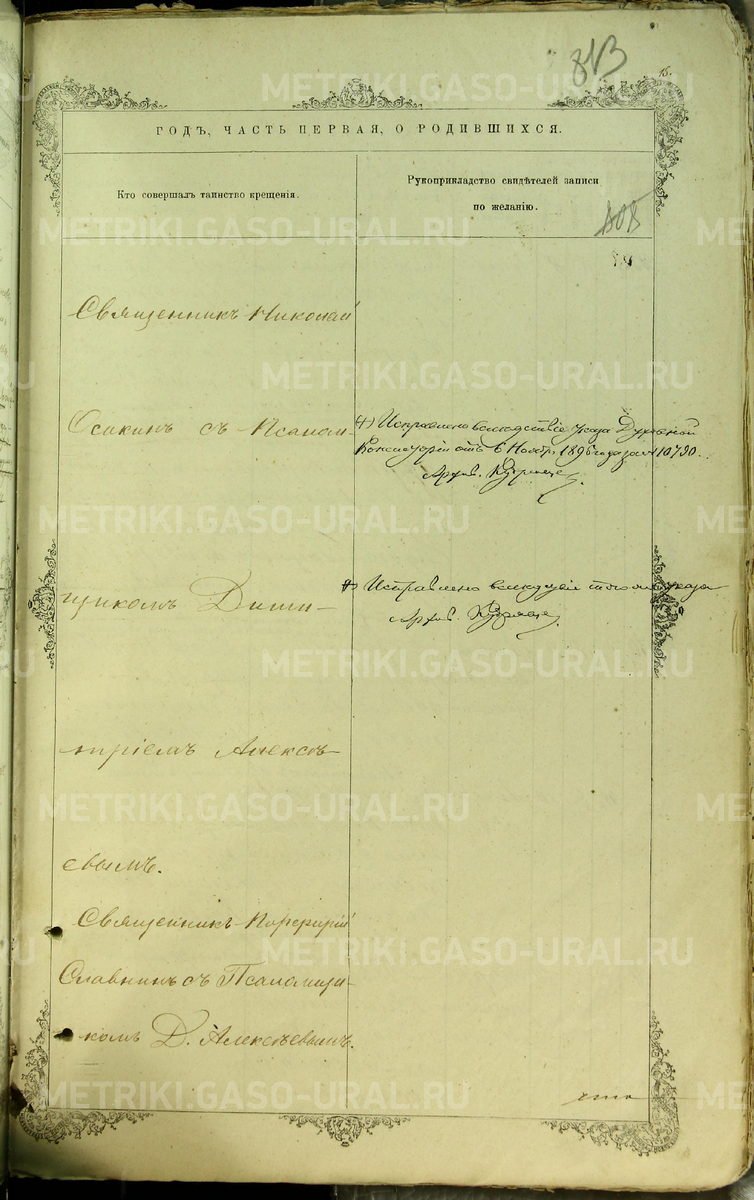 813
16.
ГОДЪ, ЧАСТЬ ПЕРВАЯ, О РОДИВШИХСЯ.
Кто совершалъ таинство крещенія.
Рукоприкладство свидѣтелей записи
по желанію.
808
Священникъ Николай
Осикинъ съ Псалом-
щикомъ Дими-
тріемъ Алексѣ-
евымъ.
Священникъ Порфирій
Славнинъ съ Псаломщи-
комъ Д. Алексѣевымъ.
+) Исправлено вследствіе указа Духовной
Консисторіи отъ 6 Ноябр. 1896 года за № 10730.
Архив.
+) Исправлено вследствіи того же указа
Архив.
что
METRIKI.GASO-URAL.RU